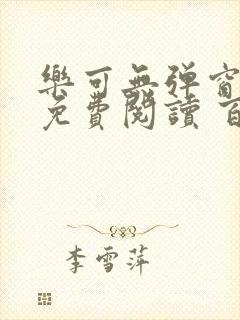 樂可無弹窗
免費閱讀 百
李雪萍